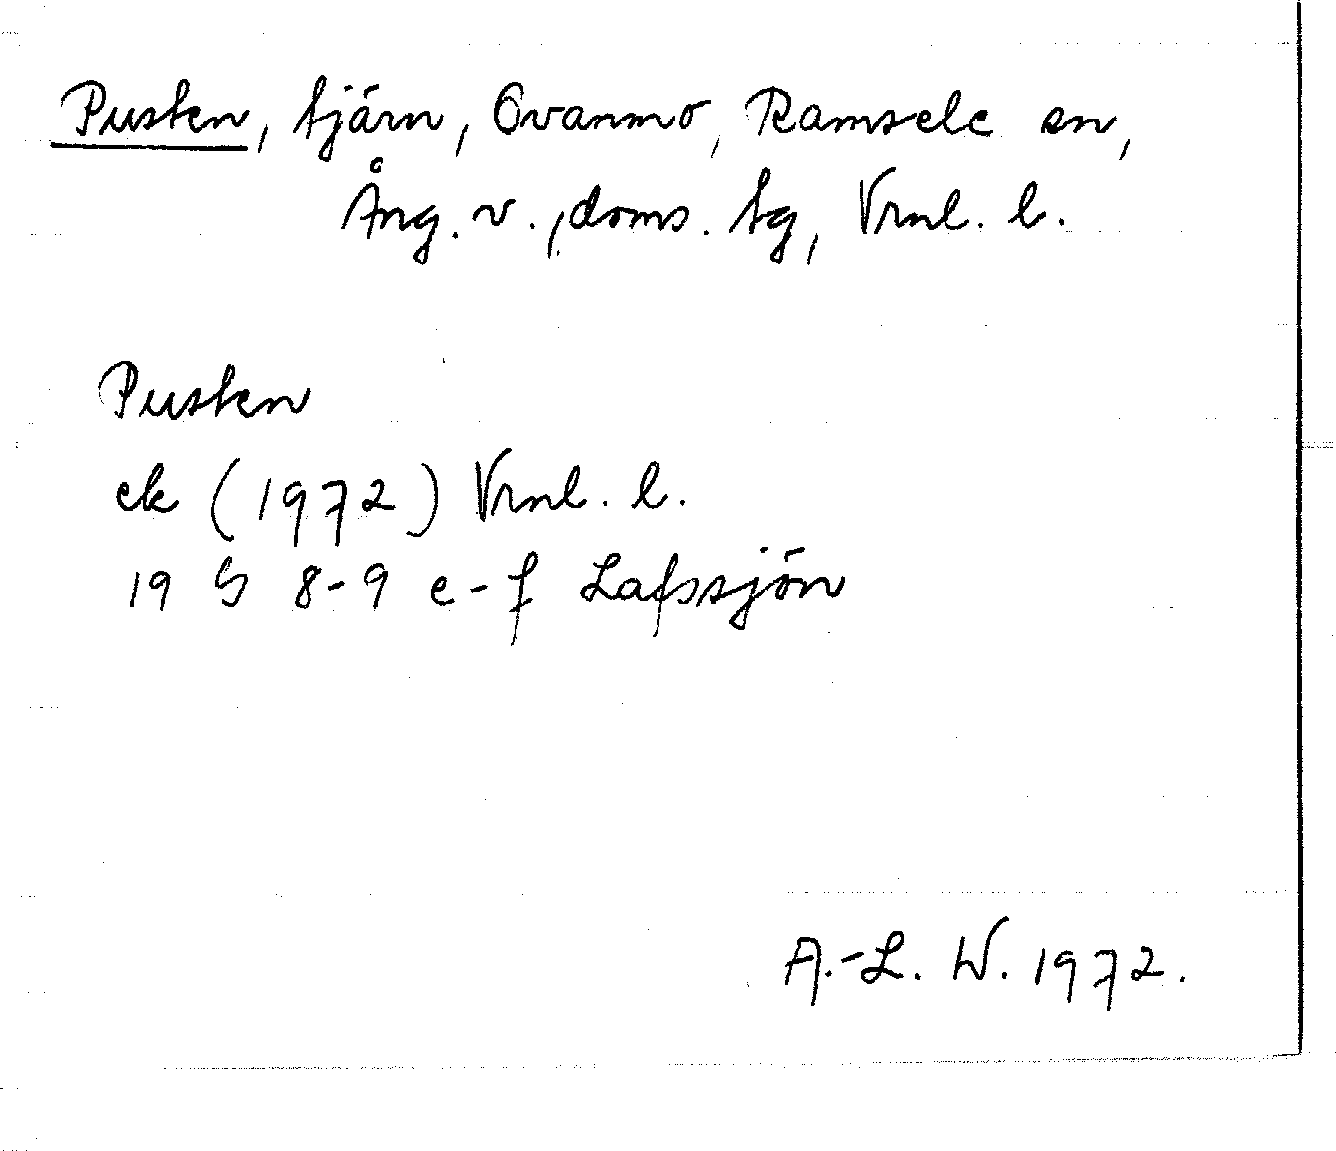 Pusten, tjärn, Ovanmo, Ramsele sn,
Ång. v., doms. tg, Vrnl. l.
Pusten
ek (1972) Vrnl. l.
19 G 8-9 e-f Lafssjön
A.-L. W. 1972.